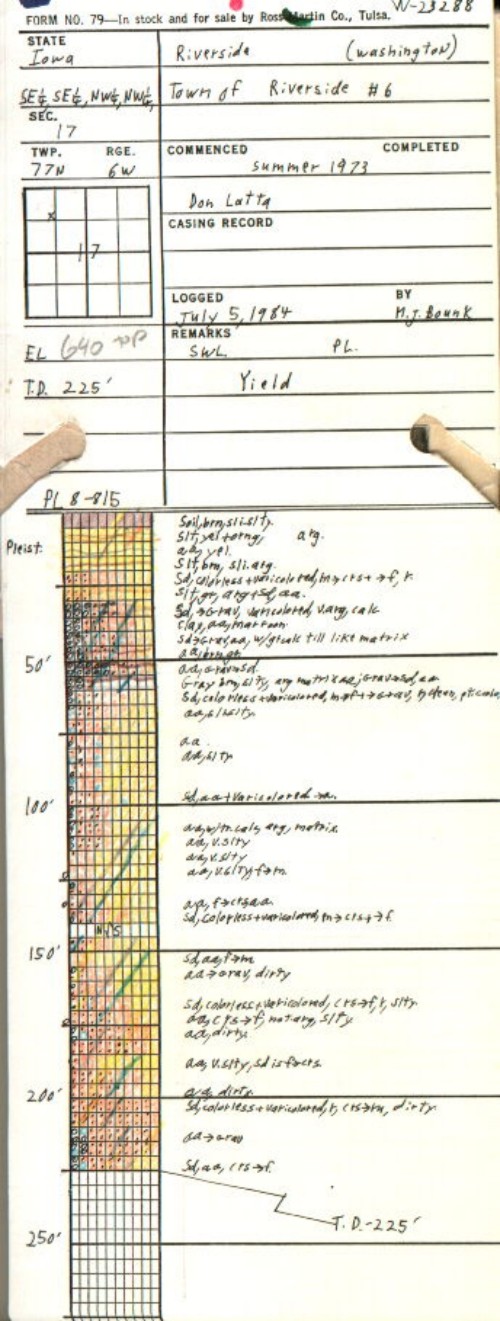 W-23288
FORM NO. 79—In stock and for sale by Ross-Martin Co., Tulsa.
STATE
Iowa
Riverside (Washington)
SE¼, SE¼, NW¼, NW¼,
Town of Riverside #6
SEC.
17
TWP. RGE.
77N 6W
COMMENCED COMPLETED
summer 1973
x
17
Don Latta
CASING RECORD
LOGGED BY
July 5, 1984 M.J. Bounk
REMARKS
EL 640 top
SWL PL.
T.D. 225'
Yield
PL 8-815
Pleist.
Soil, brn, sli. slty.
Slt, yel + orng, arg.
aa, yel.
Slt, brn, sli. arg.
Sd, colorless + varicolored, m→crs→f, r.
Slt, gr, arg + sd, aa.
Sd, → Grav, varicolored, v. arg, calc
Clay, aa, maroon
Sd → Grav, aa, w/ calc till like matrix
50'
aa, Grav → sd.
Sd, colorless + varicolored,
aa, sli. slty.
aa.
aa, slty
Sd, aa + varicolored
100'
aa, w/ tr. calc, arg, matrix
aa, v. slty
aa, v. slty
aa, v. slty, f→m.
aa, f→crs aa.
Sd, colorless + varicolored, m→crs→f.
N/S
150'
Sd, aa, f→m
aa → Grav, dirty
Sd, colorless + varicolored, crs→f, r, slty.
aa, crs→f, not arg, slty
aa, dirty.
aa, v. slty, sd is f→crs.
200'
aa, dirty.
Sd, colorless + varicolored, r, crs→m, dirty.
aa → Grav
Sd, aa, crs→f.
T.D.-225'
250'